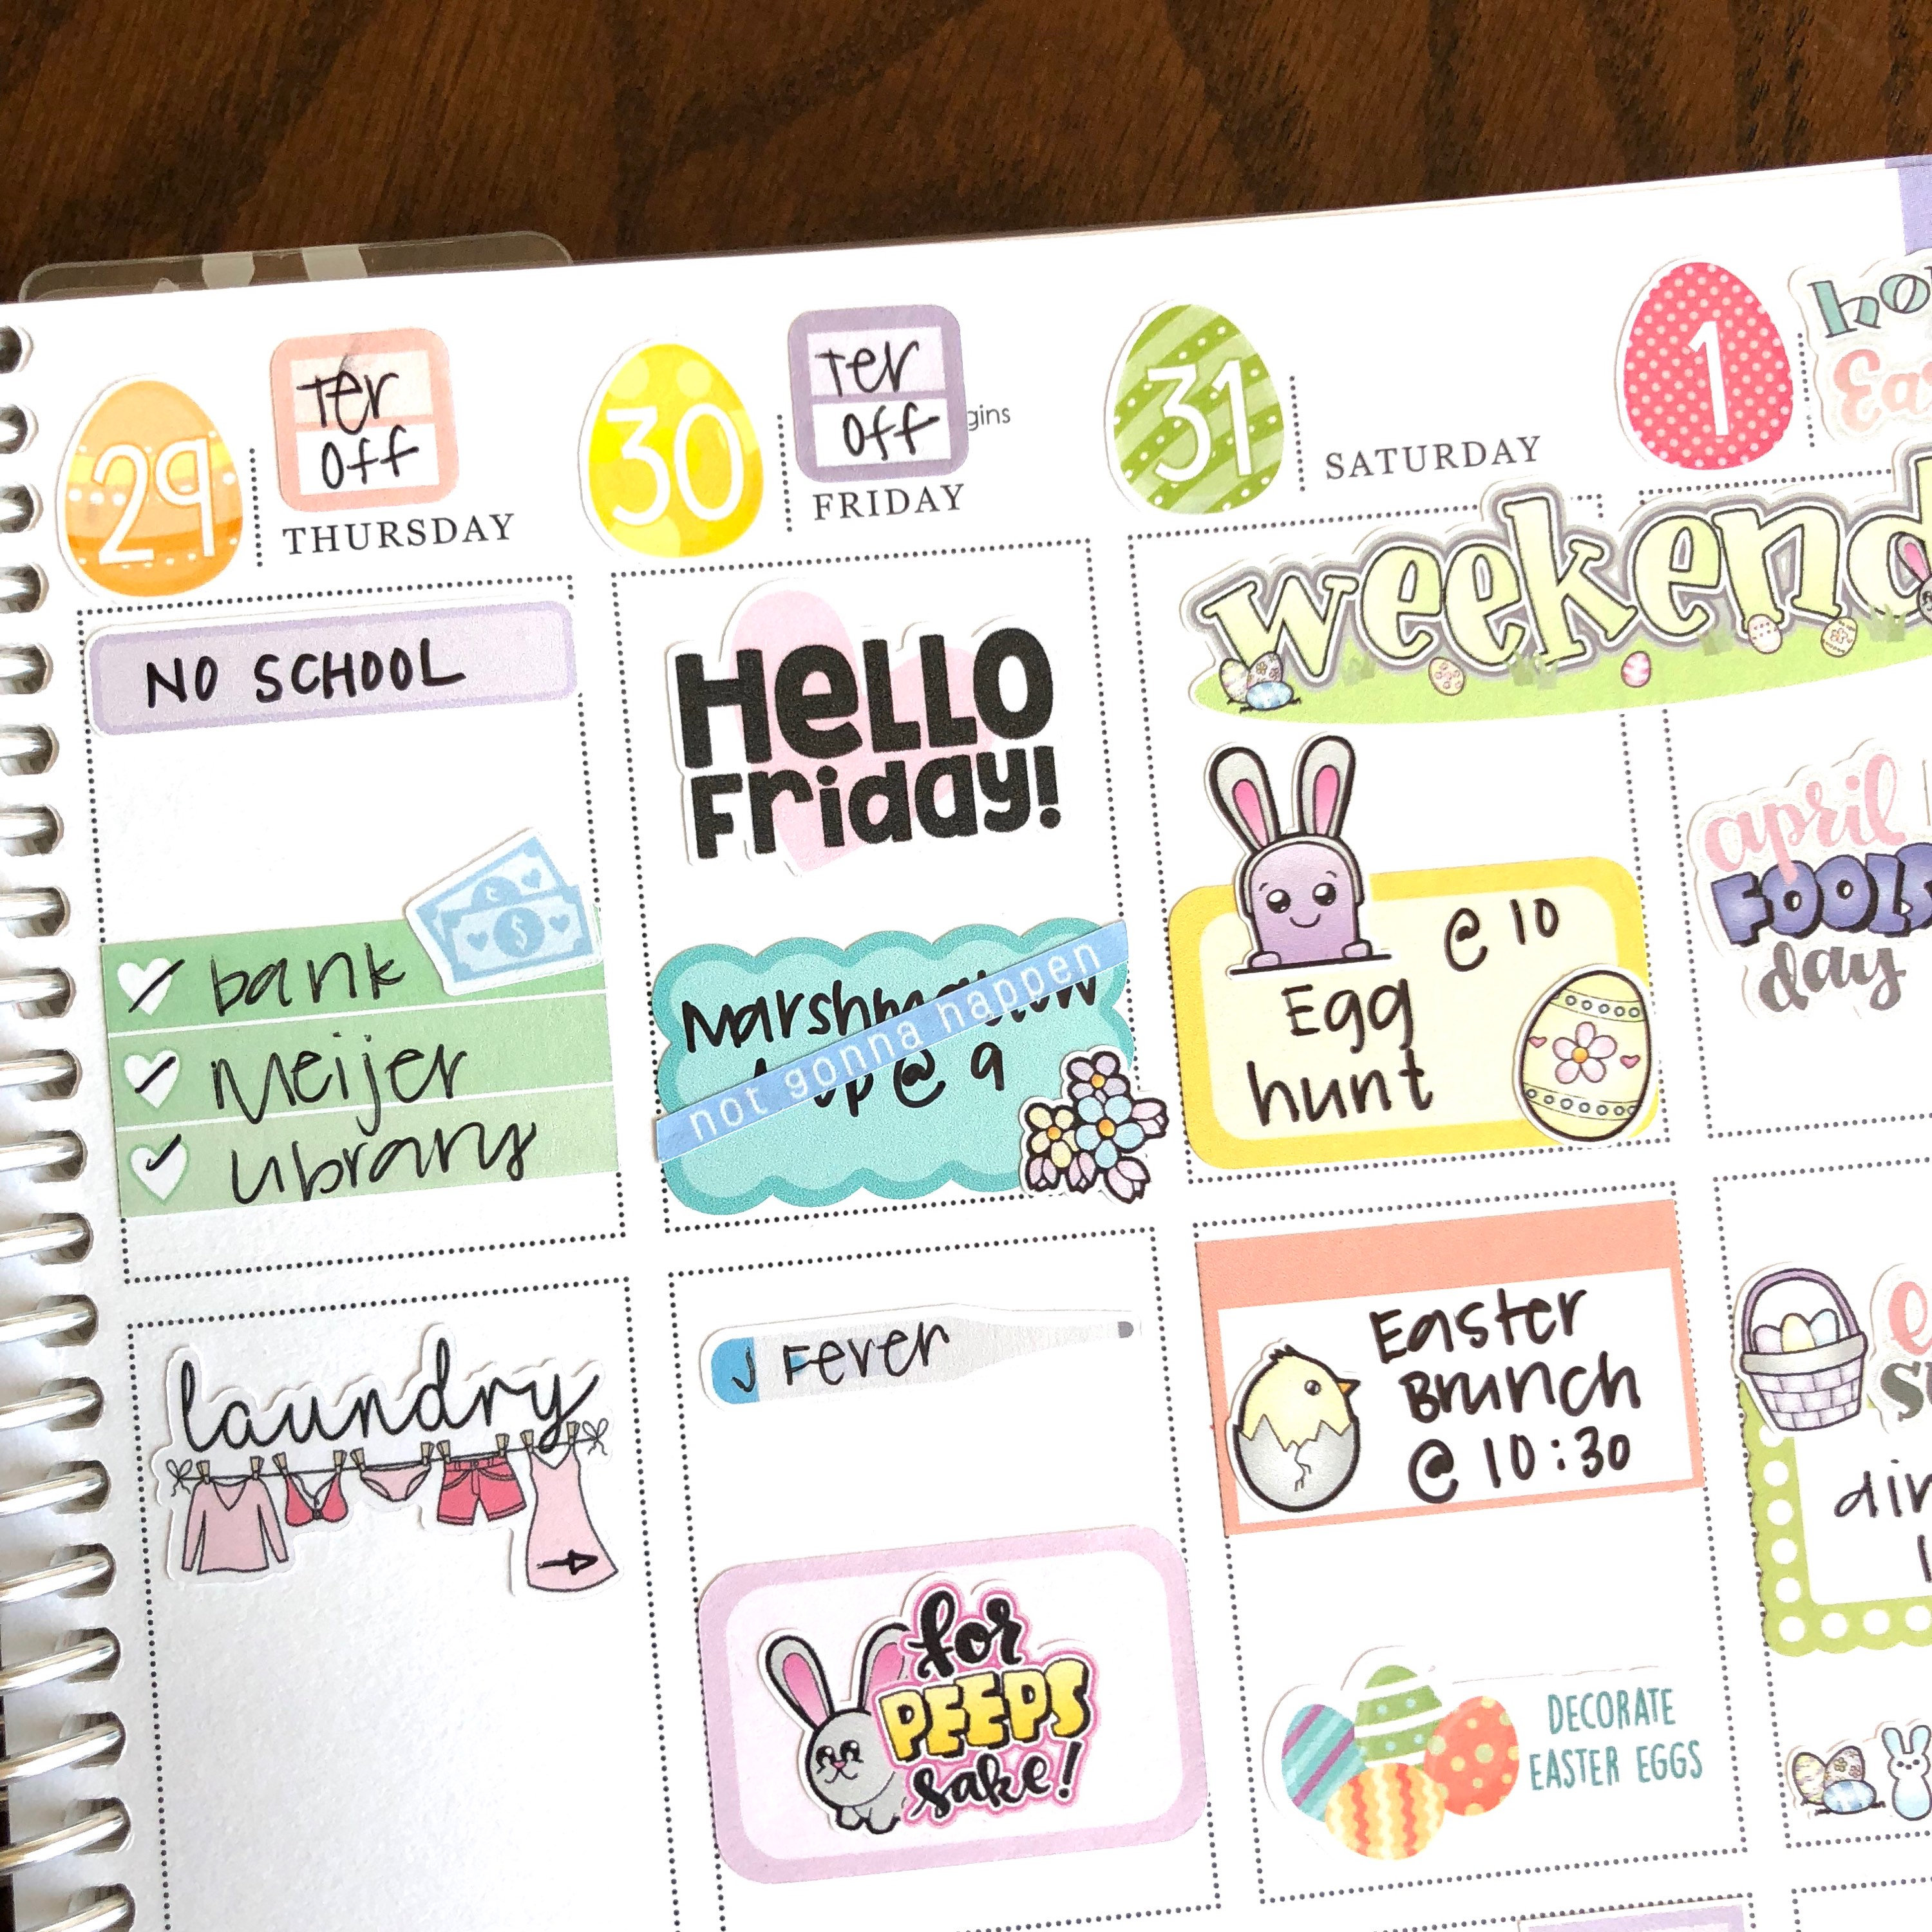 29
Ter
Off
THURSDAY
NO SCHOOL
bank
Meijer
Library
laundry
30
Ter
Off
gins
FRIDAY
HELLO
FRiday!
Marshmallow
not gonna happen
@ 9
J Fever
for
PEEPS
sake!
31
SATURDAY
weekend
@ 10
Egg
hunt
Easter
Brunch
@ 10:30
DECORATE
EASTER EGGS
1
april
FOOLS
day